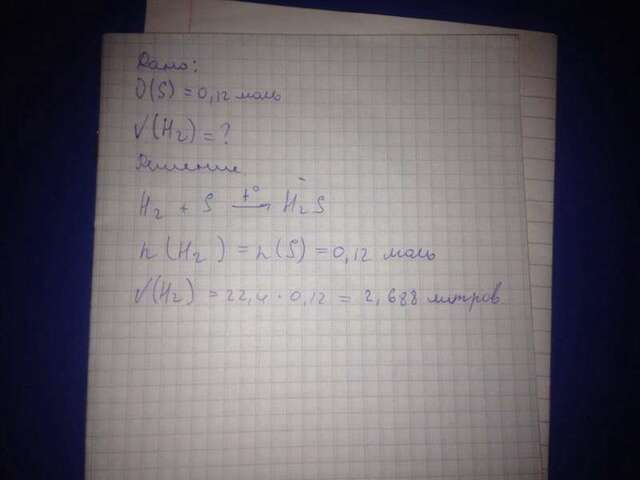 Дано:
ν(S) = 0,12 моль
V(H₂) = ?
Решение
H₂ + S →t° H₂S
n(H₂) = n(S) = 0,12 моль
V(H₂) = 22,4 · 0,12 = 2,688 литров